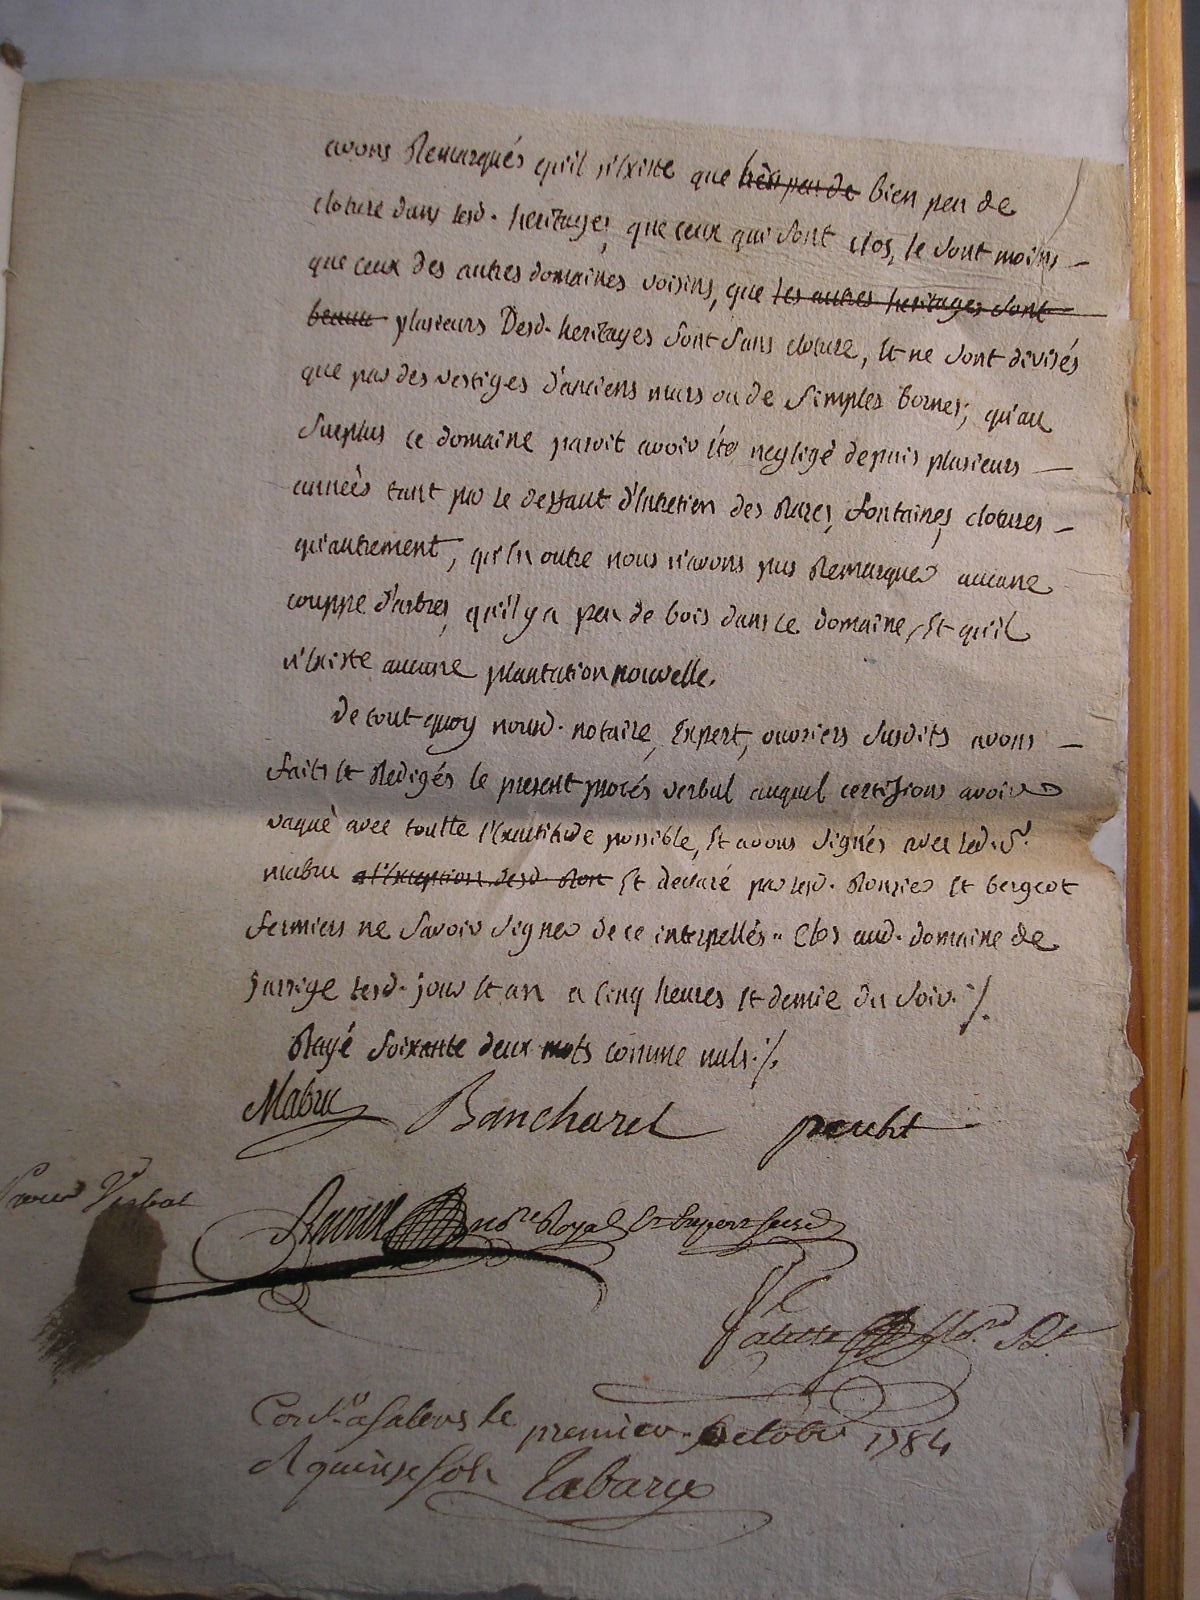 avons Remarqués qu'il n'Existe que très peu de bien peu de
cloture dans lesd. heritages, que ceux qui sont clos, le sont moins
que ceux des autres domaines voisins, que les autres heritages sont
beauu plusieurs Desd. heritages sont sans cloture, Et ne sont divisés
que par des vestiges d'anciens murs ou de simples bornes; qu'au
surplus ce domaine paroit avoir été negligé depuis plusieurs
années tant par le deffaut d'Entretien des Razes, fontaines, clotures
qu'autrement, qu'En outre nous n'avons pas Remarqué aucune
couppe d'arbres, qu'il y a peu de bois dans ce domaine, Et qu'il
n'Existe aucune plantation nouvelle.
De tout quoy nousd. notaire, Expert, ouvriers susdits avons
faits Et Redigés le present procés verbal auquel certifions avoir
vaqué avec toutte l'Exactitude possible, Et avons signés avec led. Sr.
mabru a l'Exception desd. Ron Et declaré par lesd. Ronzier Et bergeot
fermiers ne savoir signer de ce interpellés .. Clos aud. domaine de
Jarrige lesd. jour Et an a cinq heures Et demie du soir ./.
Rayé soixante deux mots comme nuls ./.
Mabru Bancharel peubit
nore Royal Et Expert
Valette
Con.lé a Salers le premier octobre 1784
R quinze sols Tabary